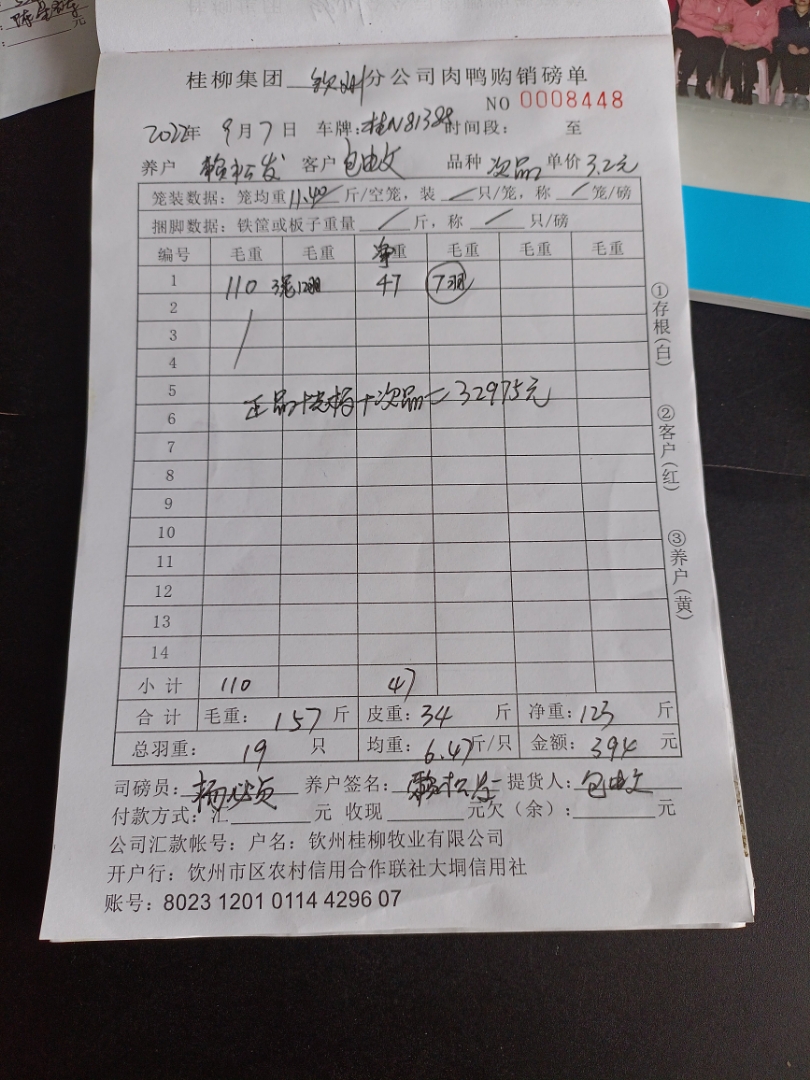 元
元
桂柳集团 钦州 分公司肉鸭购销磅单
NO 0008448
2022年 9月7日 车牌:桂N81388 时间段: 至
养户 赖松发 客户 包由文 品种 次品 单价 3.2元
笼装数据:笼均重11.40斤/空笼,装 / 只/笼,称 / 笼/磅
捆脚数据:铁筐或板子重量 / 斤,称 / 只/磅
编号 毛重 毛重 净重 毛重 毛重 毛重
1 110 3笼12羽 47 7羽
2
3
4
5
正品+光杨+次品=32975元
6
7
8
9
10
11
12
13
14
小计 110 47
合计 毛重:157斤 皮重:34 斤 净重:123 斤
总羽重: 19 只 均重:6.47斤/只 金额:394 元
司磅员: 养户签名:赖松发 提货人:包由文
付款方式:汇 元 收现 元欠(余): 元
公司汇款帐号:户名:钦州桂柳牧业有限公司
开户行:钦州市区农村信用合作联社大垌信用社
账号:8023 1201 0114 4296 07
①存根(白)
②客户(红)
③养户(黄)